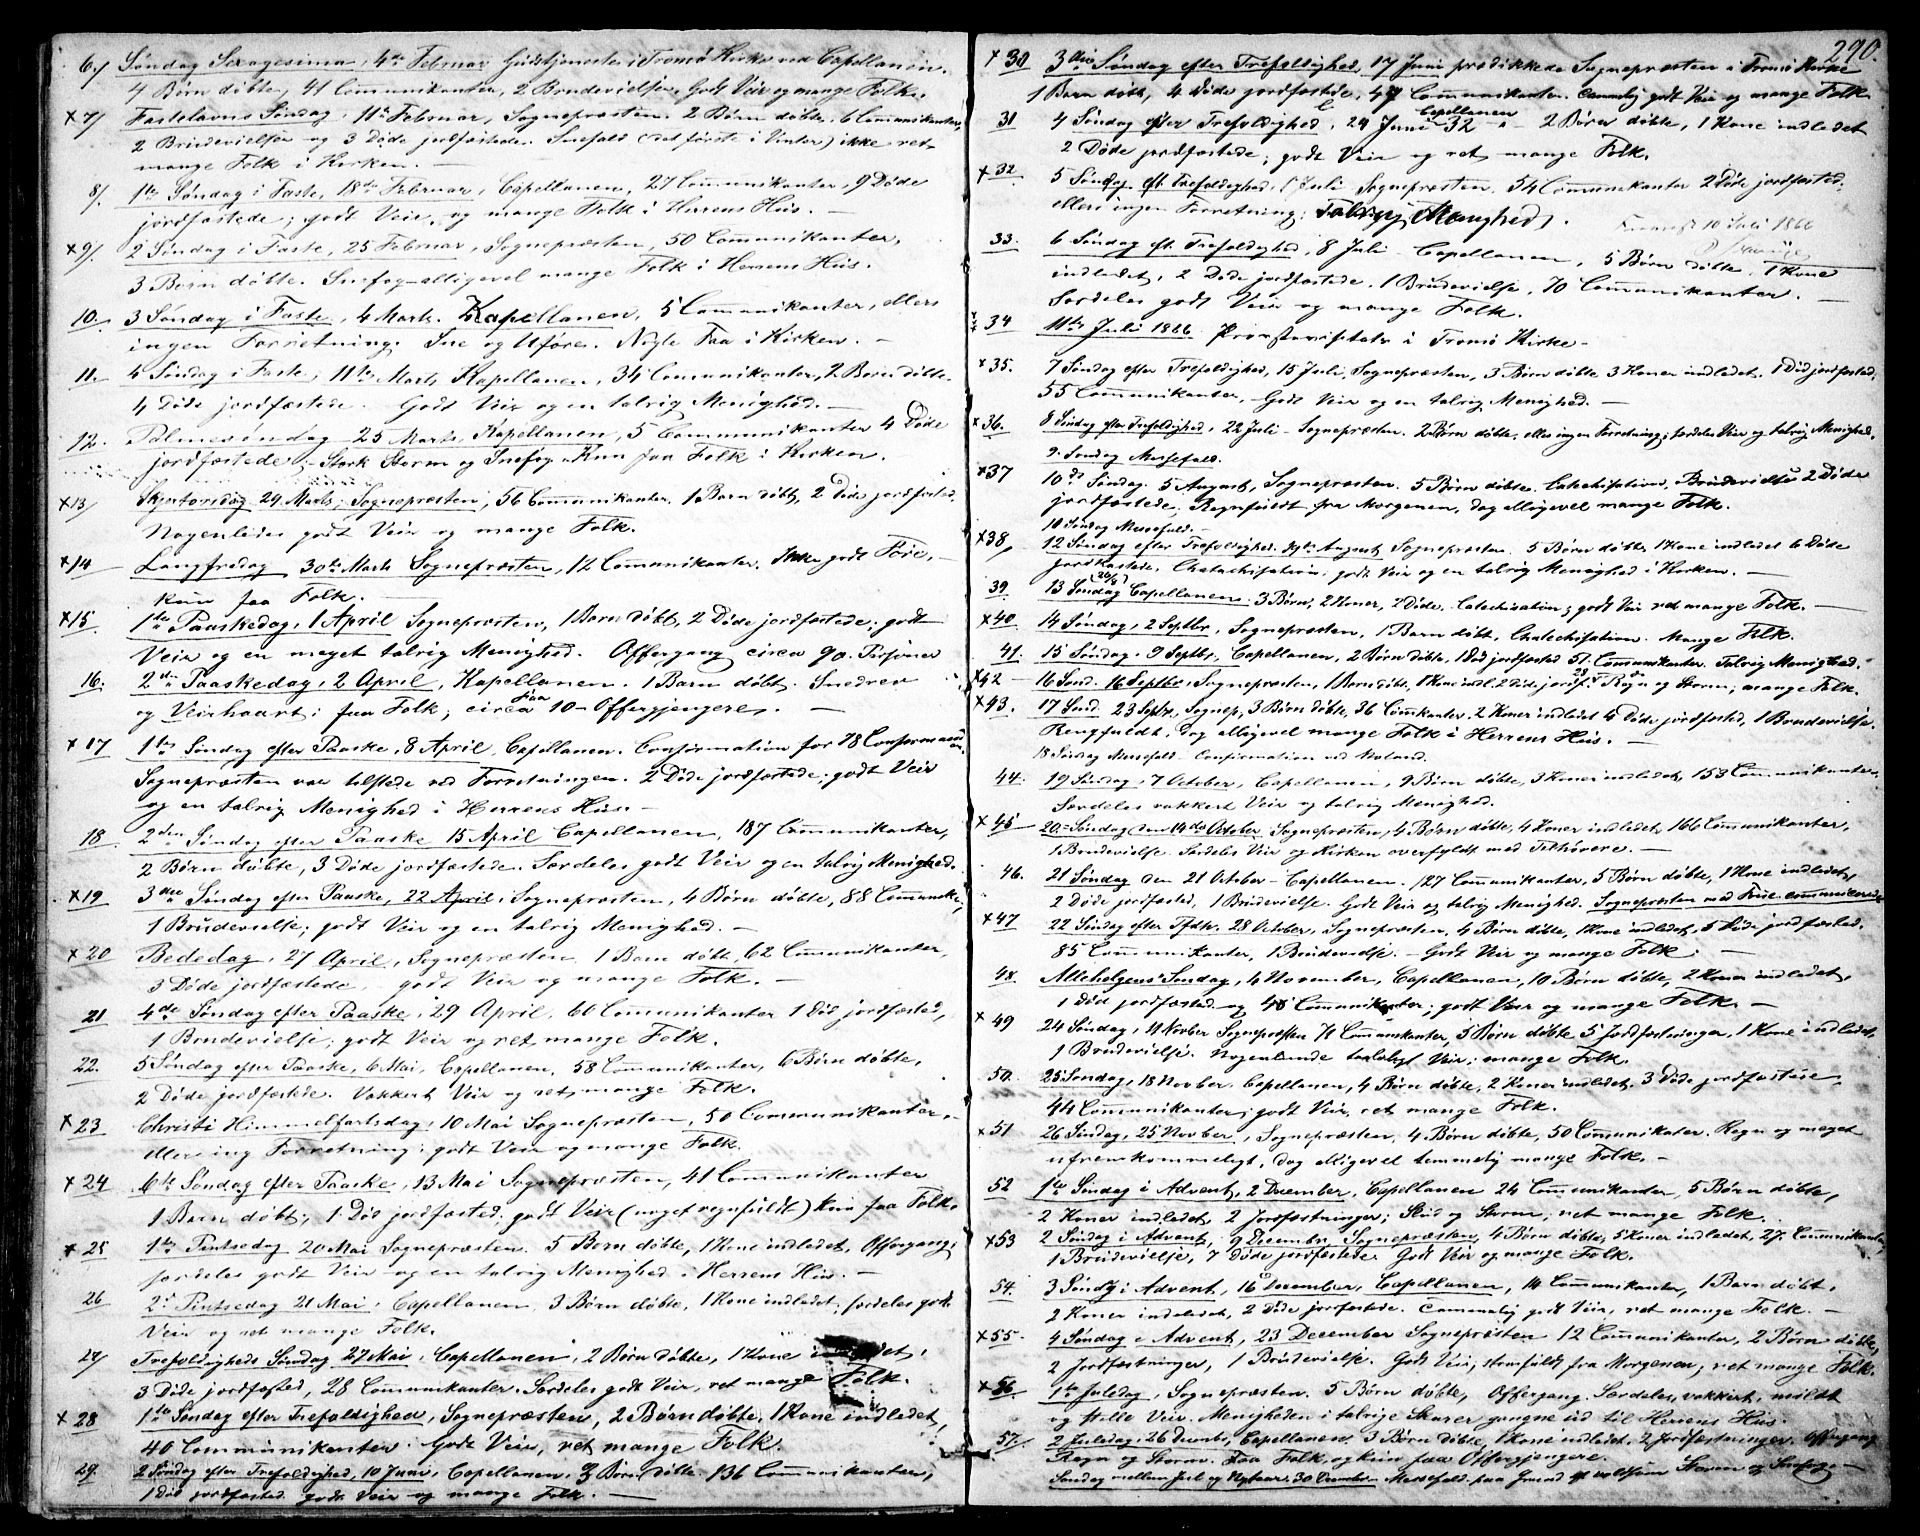 6./ Søndag Sexagesima, 4de Februar Gudstjeneste i Tromsø Kirke ved Capellanen.
4 Børn døbte, 41 Communikanter, 2 Brudevielser. Godt Veir og mange Folk.
x 7/ Fastelavns Søndag, 11te Februar, Sognepræsten. 2 Børn døbte, 6 Communikanter,
2 Brudevielser og 3 Døde jordfæstede. Snefald (det første i Vinter) ikke ret
mange Folk i Kirken.
8/. 1ste Søndag i Faste, 18de Februar, Capellanen, 27 Communikanter, 9 Døde
jordfæstede; godt Veir, og mange Folk i Herrens Hus. —
x 9/. 2 Søndag i Faste, 25 Februar, Sognepræsten, 50 Communikanter,
3 Børn døbte. Snefog - alligevel mange Folk i Herrens Hus.
10. 3 Søndag i Faste, 4 Marts. Kapellanen, 5 Communikanter, ellers
ingen Forretning. Sne og Uføre. Nogle Faa i Kirken. —
11. 4 Søndag i Faste, 11te Marts, Kapellanen, 34 Communikanter, 2 Børn døbte.
4 Døde jordfæstede. Godt Veir og en talrig Menighed. —
12. Palmesøndag 25 Marts, Kapellanen, 5 Communikanter 4 Døde
jordfæstede; Stærk Storm og Snefog. Kun faa Folk i Kirken.
x 13/ Skjærtorsdag 29 Marts, Sognepræsten, 56 Communikanter. 1 Barn døbt, 2 Døde jordfæsted.
Nogenledes godt Veir og mange Folk.
x 14 Langfredag 30te Marts Sognepræsten, 12 Communikanter. Ikke godt Føre, —
kun faa Folk. —
x 15 1ste Paaskedag, 1 April Sognepræsten, 1 Barn døbt, 2 Døde jordfæstede; godt
Veir og en meget talrig Menighed. Offergang circa 90 Personer
16. 2den Paaskedag, 2 April, Kapellanen. 1 Barn døbt. Snedrev
og Veirhaart; faa Folk; circa 10 - Offergjængere. —
x 17 1ste Søndag efter Paaske, 8 April, Capellanen. Confirmation for 78 Confirmander.
Sognepræsten var tilstede ved Forretningen. 2 Døde jordfæstede; godt Veir
og en talrig Menighed i Herrens Hus. —
18. 2den Søndag efter Paaske 15 April Capellanen, 187 Communikanter,
2 Børn døbte, 3 Døde jordfæstede. Særdeles godt Veir og en talrig Menighed.
x 19 3die Søndag efter Paaske, 22 April, Sognepræsten, 4 Børn døbte, 88 Communiker,
1 Brudevielse; godt Veir og en talrig Menighed. —
x 20 Bededag, 27 April, Sognepræsten 1 Barn døbt, 62 Communikanter,
3 Døde jordfæstede, godt Veir og mange Folk. —
21 4de Søndag efter Paaske, 29 April, 60 Communikanter 1 Død jordfæstet,
1 Brudevielse; godt Veir og ret mange Folk.
22. 5 Søndag efter Paaske, 6 Mai, Capellanen, 58 Communikanter, 6 Børn døbte,
2 Døde jordfæstede. Vakkert Veir og ret mange Folk.
x 23 Christi Himmelfartsdag, 10 Mai Sognepræsten, 50 Communikanter. —
ellers ing Forretning; godt Veir og mange Folk.
x 24 6te Søndag efter Paaske, 13 Mai Sognepræsten, 41 Communikanter
1 Barn døbt, 1 Død jordfæsted; godt Veir (noget regnfuldt) kun faa Folk.
x 25 1ste Pintsedag 20 Mai Sognepræsten. 5 Børn døbte, 1 Kone indledet, Offergang;
særdeles godt Veir - og en talrig Menighed i Herrens Hus. —
26 2d Pintsedag 21 Mai, Capellanen, 3 Børn døbte, 1 Kone indledet; særdeles godt
Veir og ret mange Folk.
27/ Trefoldigheds Søndag 27 Mai, Capellanen, 2 Børn døbte, 1 Kone indledet,
3 Døde jordfæsted, 28 Communikanter. Særdeles godt Veir, ret mange Folk.
x 28 1ste Søndag efter Trefoldighed, Sognepræsten, 2 Børn døbte, 1 Kone indledet,
40 Communikanter. Godt Veir, ret mange Folk.
29. 2 Søndag efter Trefoldighed, 10 Juni, Capellanen, 3 Børn døbte. 136 Communikanter,
1 Død jordfæsted godt Veir og mange Folk. —
290.
x 30 3die Søndag efter Trefoldighed, 17 Juni prædikkede Sognepræsten i Tromsø Kirke
1 Barn døbt, 4 Døde jordfæstede, 47 Communikanter. Temmelig godt Veir og mange Folk.
31 4 Søndag efter Trefoldighed, 24 Juni Capellanen 32 " 2 Børn døbte, 1 Kone indledet
2 Døde jordfæstede; godt Veir og ret mange Folk.
x 32 5 Søndag eft. Trefoldighed, 1 Juli Sognepræsten. 54 Communikanter 2 Døde jordfæsted.
ellers ingen Forretning; Talrig Menighed. 10 Juli 1866
33. 6 Søndag eft. Trefoldighed, 8 Juli - Capellanen, 5 Børn døbte, 1 Kone
indledet, 2 Døde jordfæstede. 1 Brudevielse, 70 Communikanter. —
Særdeles godt Veir og mange Folk.
34 11te Juli 1866 Provstevisitats i Tromsø Kirke -
x 35. 7 Søndag efter Trefoldighed, 15 Juli, Sognepræsten, 3 Børn døbte 3 Koner indledet. 1 Død jordfæsted,
55 Communikanter, Godt Veir og en talrig Menighed. —
x 36. 8 Søndag efter Trefoldighed, 22 Juli - Sognepræsten. 2 Børn døbte, ellers ingen Forretning; særdeles Veir og talrig Menighed.
9. Søndag Messefald.
x 37 10de Søndag. 5 August, Sognepræsten. 5 Børn døbte. Catechisation, Brudevielse 2 Døde
jordfæstede, Regnfuldt fra Morgenen, dog alligevel mange Folk.
10 Søndag Messefald. —
x 38 12 Søndag efter Trefoldighed. August Sognepræsten 5 Børn døbte 1 Kone indledet 6 Døde
jordfæstede, Chatechisation, godt Veir og en talrig Menighed i Kirken. —
39. 13 Søndag (26/8) Capellanen. 3 Børn, 2 Koner, 2 Døde. Catechisation; godt Veir ret mange Folk. —
x 40. 14 Søndag, 2 Septbr, Sognepræsten, 1 Barn døbt, Chatechisation. Mange Folk.
41. 15 Søndag, 9 Septbr, Capellanen, 2 Børn døbte, 1 Død jordfæsted 51 Communikanter. Talrig Menighed.
x 42 — 16 Sønd. 16 Septbr, Sognepræsten, 1 Barn døbt, 1 Kone indl. 2 Døde jordf. Regn og Storm; mange Folk.
x 43. 17 Sønd. 23 Septbr, Sognep, 3 Børn døbte, 36 Commkanter. 2 Koner indledet 4 Døde jordfæsted, 1 Brudevielse.
Regnfuldt, dog alligevel mange Folk i Herrens Hus. —
18 Søndag Messefald. Confirmation ved
44. 19 Søndag, 7 October, Capellanen, 9 Børn døbte, 3 Koner indledet, 153 Communikanter.
Særdeles vakkert Veir og talrig Menighed.
x 45 20. Søndag den 14de October Sognepræsten, 4 Børn døbte, 4 Koner indledet, 166 Communikanter,
1 Brudevielse. Særdeles Veir og Kirken overfyldt med Tilhørere. —
46. 21 Søndag den 21 October - Capellanen. 127 Communikanter, 5 Børn døbte, 1 Kone indledet,
2 Døde jordfæsted, 1 Brudevielse. Godt Veir og talrig Menighed. Sognepræsten med Frue communicerede
x 47 22 Søndag efter Tfdh. 28 October, Sognepræsten, 4 Børn døbte, 1 Kone indledet, 5 Døde jordfæsted.
85 Communikanter, 1 Brudevielse. - Godt Veir og mange Folk. —
48. Allehelgens Søndag, 4 November, Capellanen, 10 Børn døbte, 2 Koner indledet,
1 Død jordfæsted og 48 Communikanter; godt Veir og mange Folk. —
x 49 24 Søndag, 11 Novber Sognepræsten 71 Communikanter, 3 Børn døbte 5 Jordfæstninger, 1 Kone indledet,
1 Brudevielse. Nogenlunde taaleligt Veir; mange Folk.
50. 25 Søndag, 18 Novber. Capellanen, 4 Børn døbte, 2 Koner indledet, 3 Døde jordfæstede,
44 Communikanter; godt Veir, ret mange Folk.
x 51 26 Søndag, 25 Novber, Sognepræsten, 4 Børn døbte, 50 Communikater. Regn og meget
ufremkommeligt, dog alligevel temmelig mange Folk. —
52 1ste Søndag i Advent, 2 December, Capellanen 24 Communikanter, 5 Børn døbte,
2 Koner indledet, 2 Jordfæstninger; Slud og Storm; ret mange Folk.
x 53 2 Søndag i Advent, 9 Decembr, Sognepræsten, 4 Børn døbte, 5 Koner indledet, 27 Communikanter,
1 Brudevielse, 7 Døde jordfæstede. Godt Veir og mange Folk.
54. 3 Søndg i Advent, 16 December, Capellanen, 14 Communikanter, 1 Barn døbt,
2 Koner indledet, 2 Døde jordfæstede. Temmelig godt Veir, ret mange Folk. —
x 55 4 Søndag i Advent, 23 December Sognepræsten 12 Communikanter, 2 Børn døbte,
2 Jordfæstninger, 1 Brudevielse. Godt Veir, stormfuldt fra Morgenen; ret mange Folk.
x 56 1ste Juledag, Sognepræsten. 5 Børn døbte, Offergang. Særdeles vakkert, mildt
og stille Veir. Menigheden i talrige Skarer gangne ud til Herrens Hus.
57. 2 Juledag, 26 Decembr, Capellanen. 3 Børn døbte, 1 Kone indledet, 2 Jordfæstninger. Offergang
Regn og Storm. Faa Folk og kun faa Offergjængere.
Søndag mellem Jul og Nytaar 30 December Messefald paa Grund af voldsom Storm og Snefog —